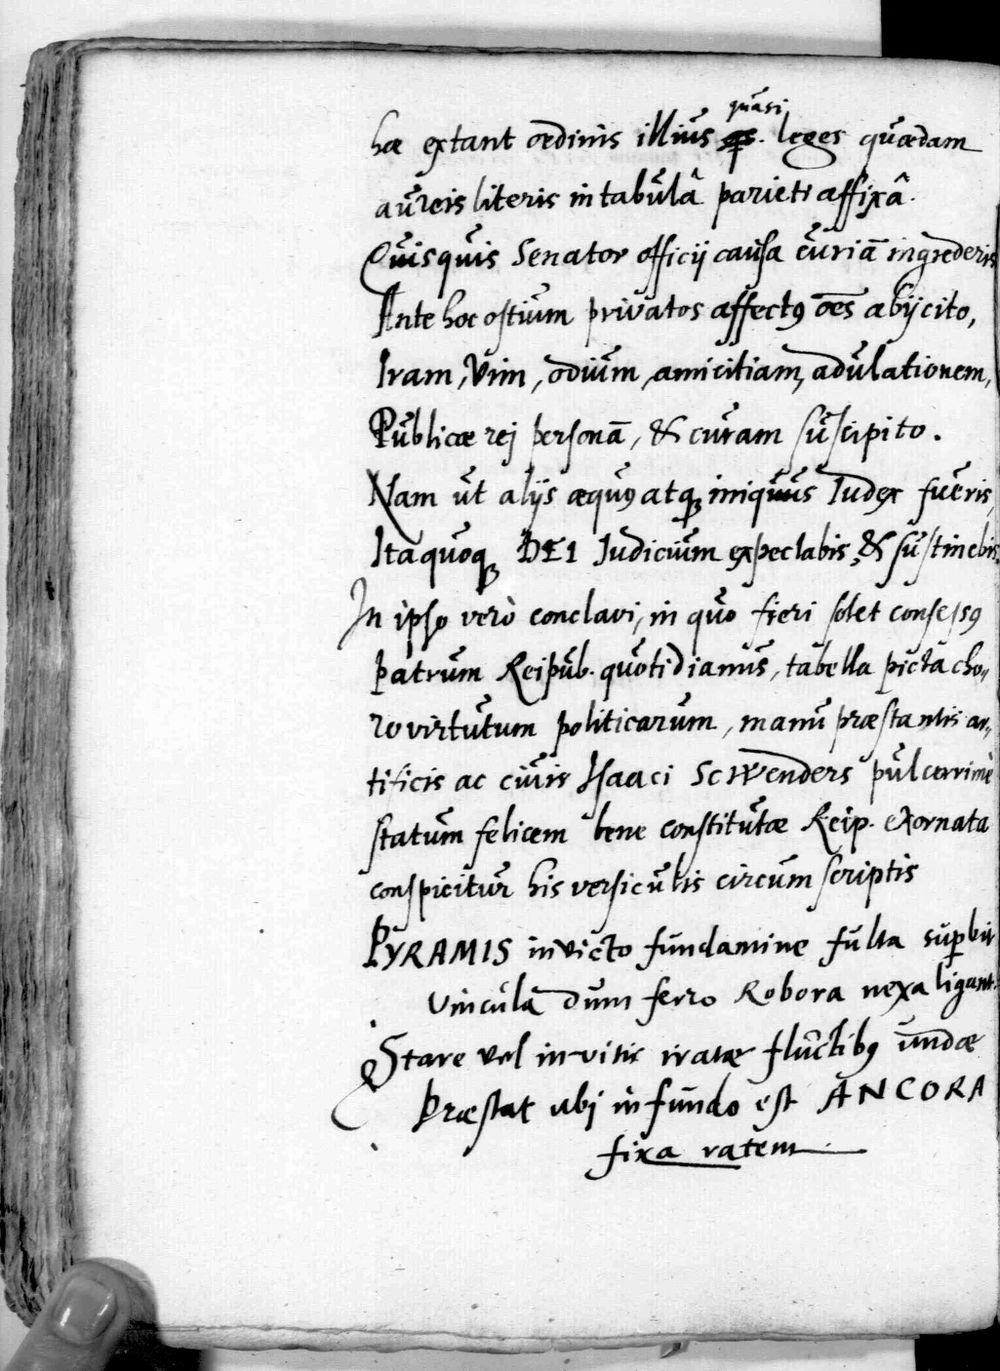 quasi
hæ extant ordinis illius q͂s. leges quædam
aureis literis in tabulâ parieti affixâ.
Quisquis Senator officij causa curiā ingrederis
Ante hoc ostium privatos affectꝰ oēs abijcito,
Iram, Vim, odium, amicitiam, adulationem,
Publicæ rej personā, & curam suscipito.
Nam ut alijs æquꝰ atqꝫ iniquus Iudex fueris,
Ita quoqꝫ DEI Iudicium expectabis, & sustinebis.
In ipso verò conclavi, in quo fieri solet consessꝰ
patrum Reipub. quotidianus, tabella picta cho-
ro virtutum politicarum, manu præstantis ar-
tificis ac civis Isaaci Scwenders pulcerrimè
statum felicem bene constitutæ Reip. exornata
conspicitur his versiculis circum scriptis
PYRAMIS invicto fundamine fulta superbit
Vincula dum ferro Robora nexa ligant.
Stare vel invitis iratæ fluctibꝰ undæ
Præstat ubj in fundo est ANCORA
fixa ratem